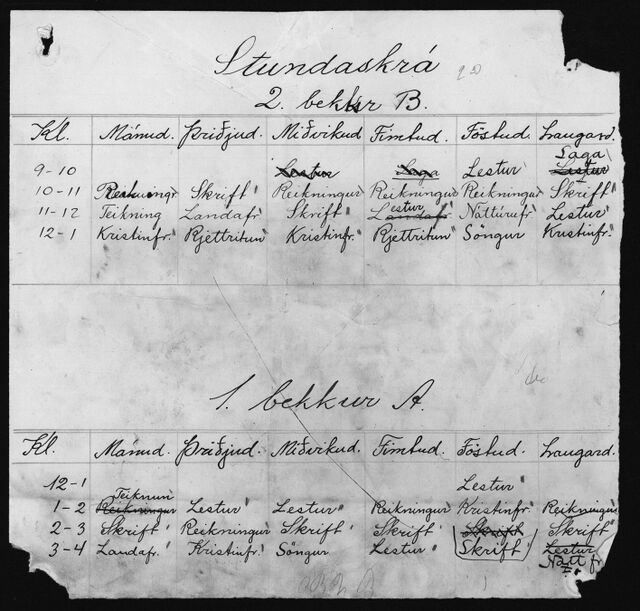 Stundaskrá
2. bekkur B.
Kl. Mánud. Þriðjud. Miðvikud Fimtud. Föstud. Laugard.
Saga
9-10 Lestur Saga Lestur Lestur
10-11 Reikningr Skrift Reikningur Reikningur Reikningur Skrift
Lestur
11-12 Teikning Landafr. Skrift Landafr. Náttúrufr. Lestur
12-1 Kristinfr. Rjettritun Kristinfr. Rjettritun Söngur Kristinfr.
1. bekkur A.
Kl. Mánud. Þriðjud. Miðvikud. Fimtud. Föstud. Laugard.
12-1 Lestur
Teiknun
1-2 Reikningur Lestur Lestur Reikningur Kristinfr. Reikningur
2-3 Skrift Reikningur Skrift Skrift Skrift Skrift
3-4 Landafr. Kristinfr. Söngur Lestur Skrift Lestur
Nátt.fr